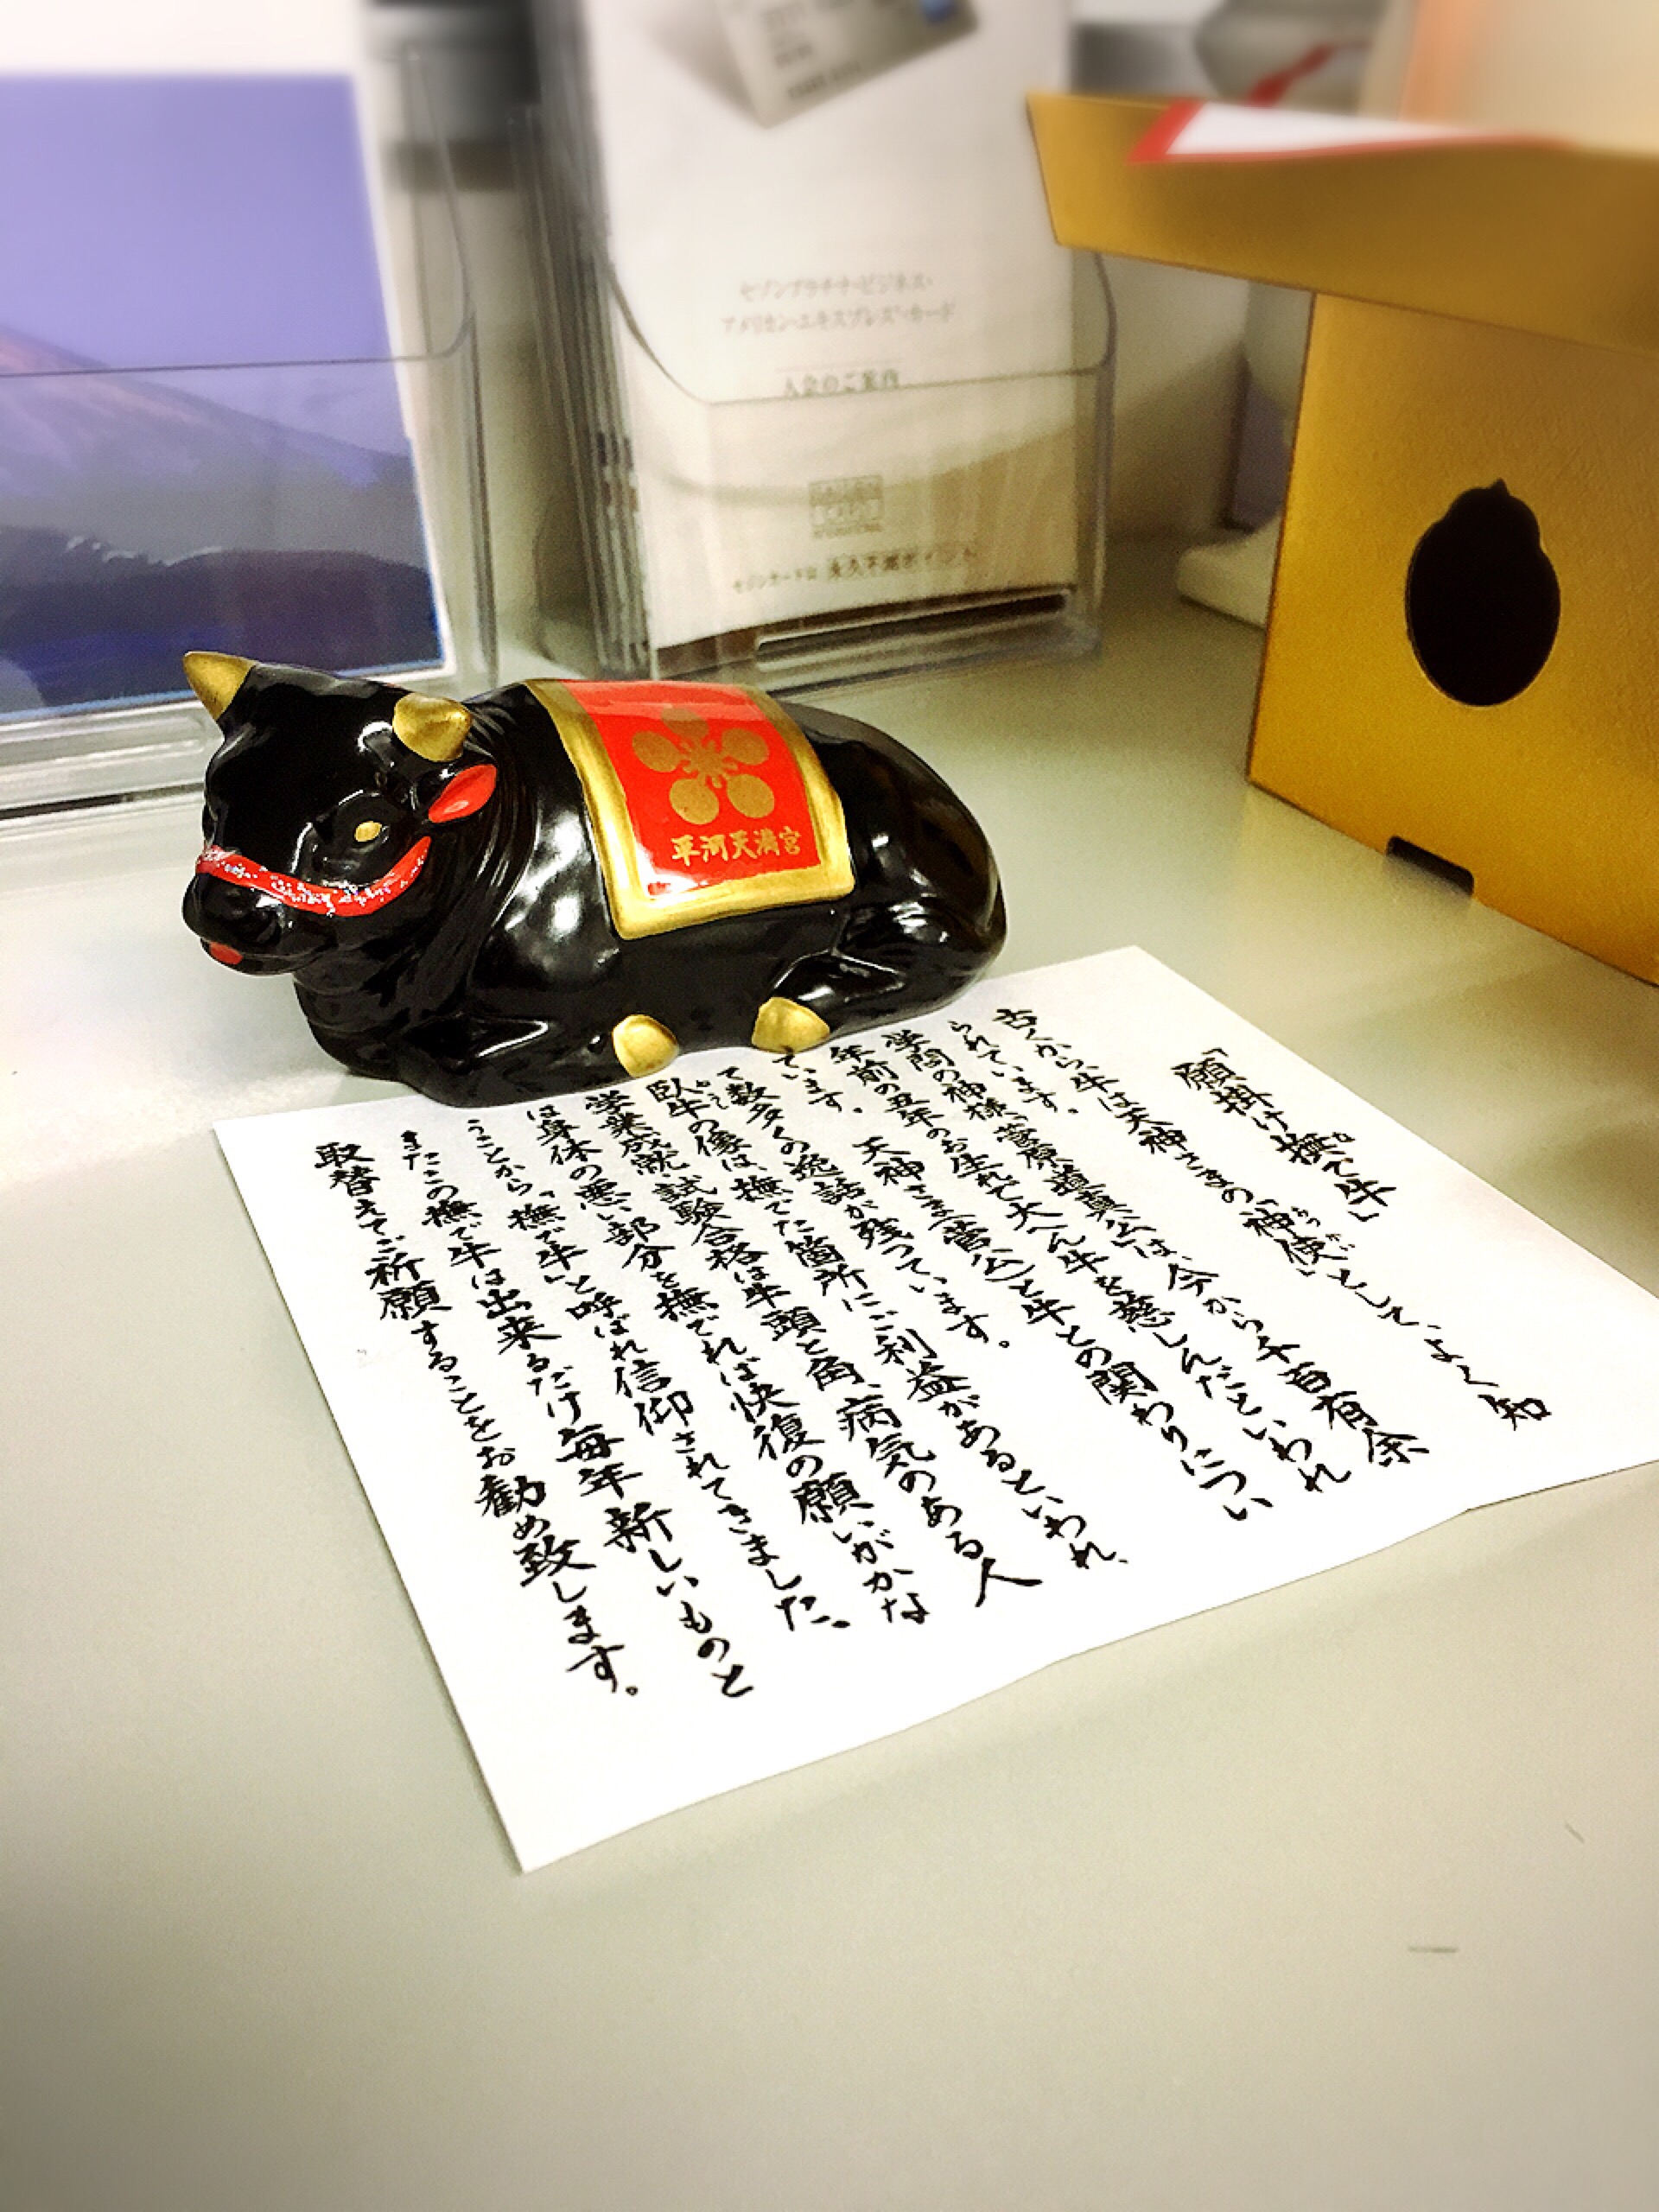 セゾンプラチナ・ビジネス・
アメリカン・エキスプレス・カード
入会のご案内
セゾンカードは 永久不滅ポイント
平河天満宮
「願掛け撫で牛」
古くから、牛は天神さまの「神使い」として、よく知
られています。
学問の神様、菅原道真公は、今から千百有余
年前の丑年のお生れで大へん牛を慈しんだといわれ
ています。 天神さま(菅公)と牛との関わりについ
て数多くの逸話が残っています。
臥牛の像は、撫でた箇所にご利益があるといわれ、
学業成就、試験合格は牛頭と角、病気のある人
は身体の悪い部分を撫でれば快復の願いがかな
うことから「撫で牛」と呼ばれ信仰されてきました。
またこの撫で牛は出来るだけ毎年新しいものと
取替えてご祈願することをお勧め致します。